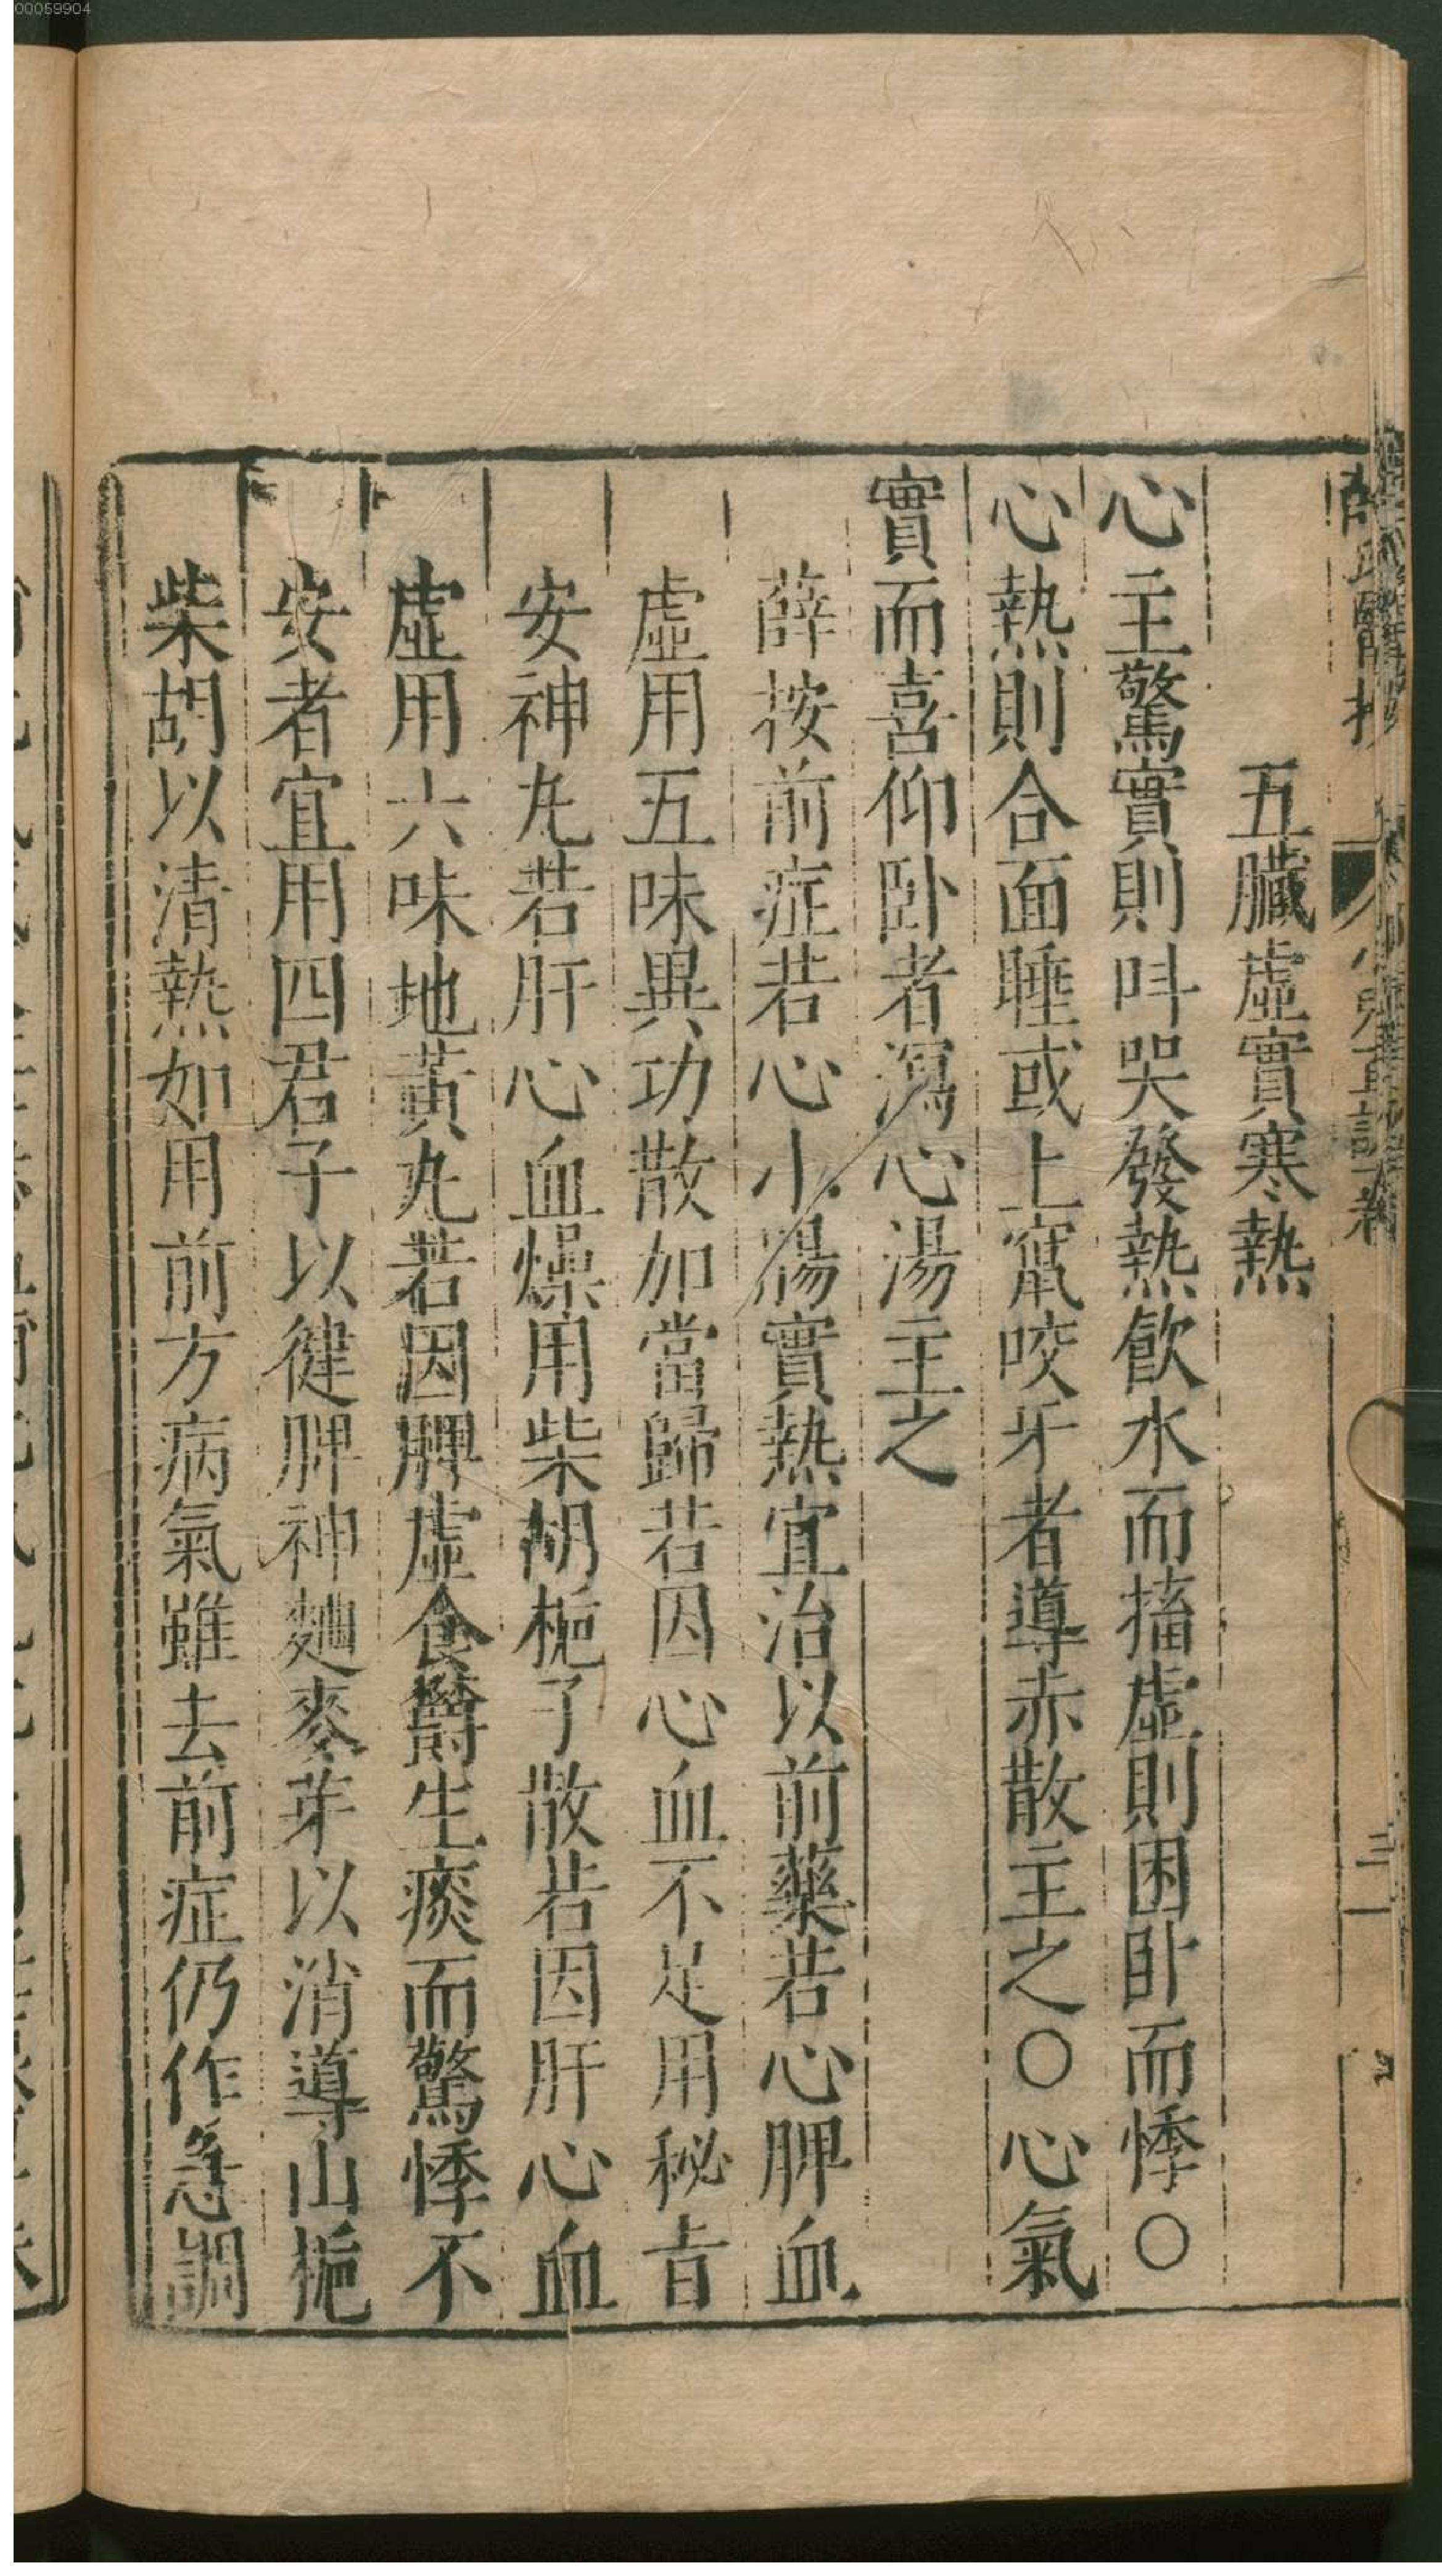 00059904
五臟虛實寒熱
心主驚實則呌哭發熱飲水而搐虛則困卧而悸〇
心熱則合面睡或上竄咬牙者導赤散主之〇心氣
實而喜仰卧者瀉心湯主之
薛按前症若心小腸實熱宜治以前藥若心脾血
虛用五味異功散加當歸若因心血不足用秘旨
安神丸若肝心血燥用柴胡梔子散若因肝心血
虛用六味地黃丸若因脾虛食鬱生痰而驚悸不
安者宜用四君子以健脾神麯麥芽以消導山梔
柴胡以清熱如用前方病氣雖去前症仍作急調